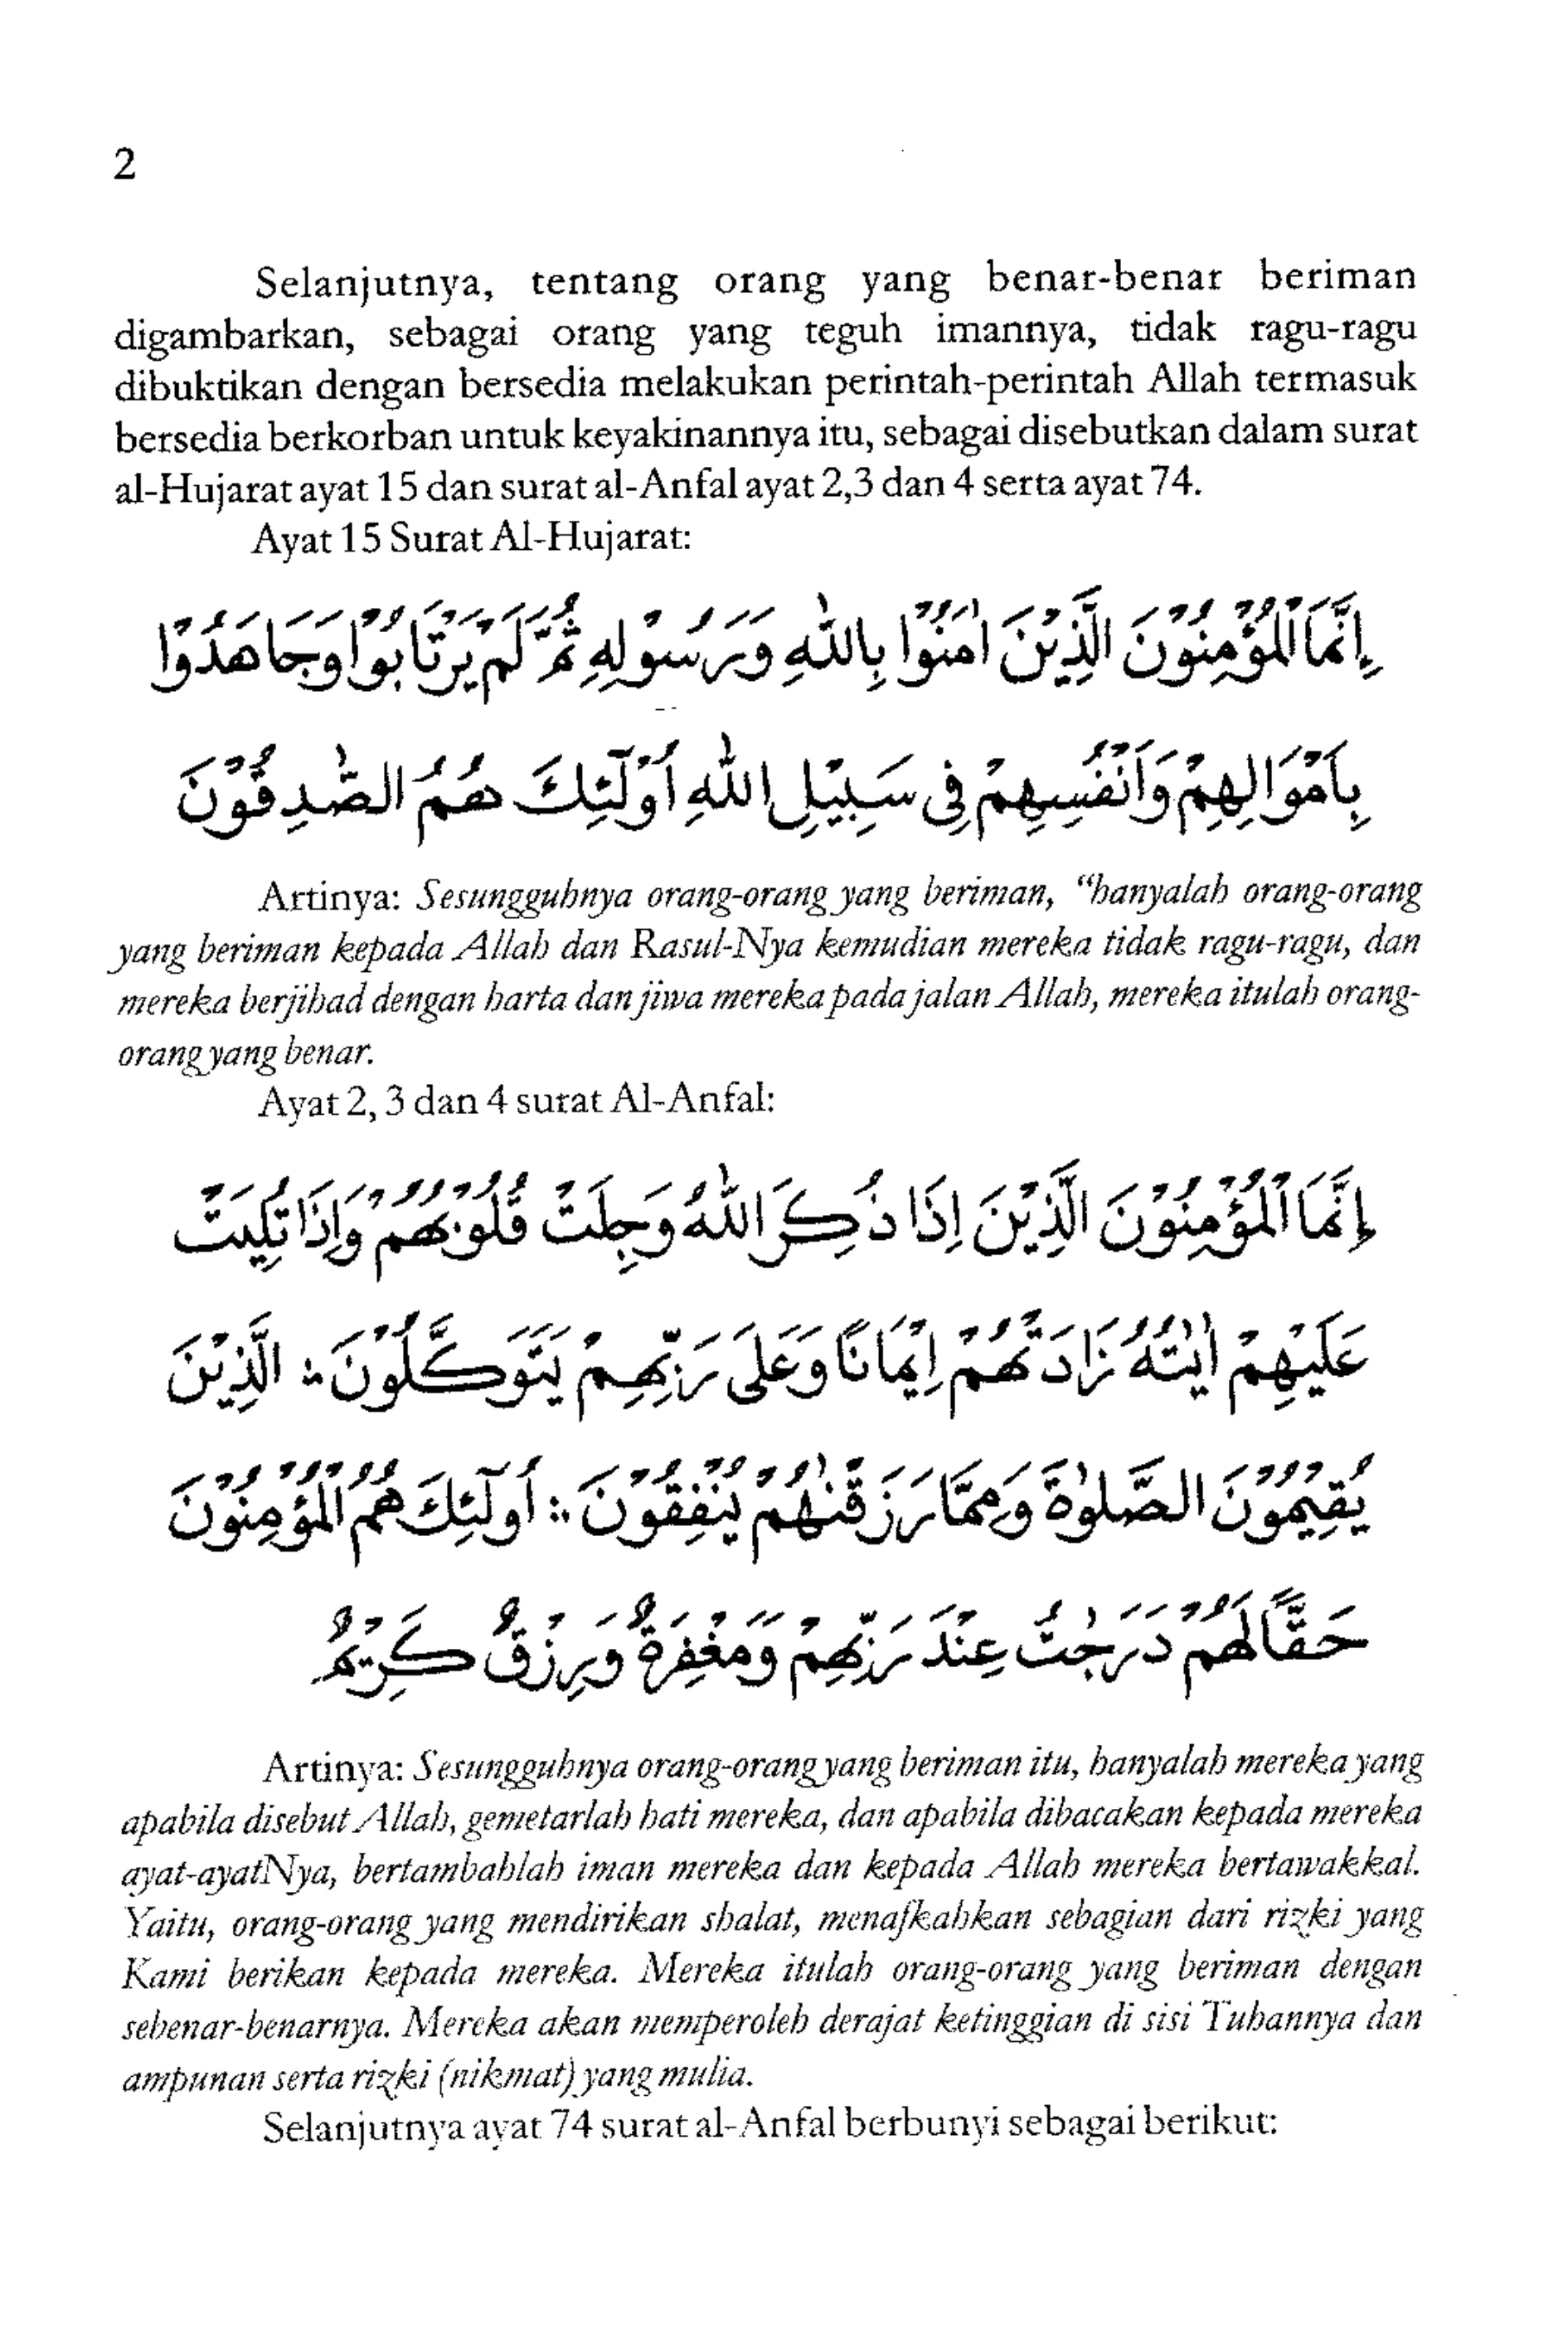 2
Selanjutnya, tentang orang yang benar-benar beriman
digambarkan, sebagai orang yang teguh imannya, tidak ragu-ragu
dibuktikan dengan bersedia melakukan perintah-perintah Allah termasuk
bersedia berkorban untuk keyakinannya itu, sebagai disebutkan dalam surat
al-Hujarat ayat 15 dan surat al-Anfal ayat 2,3 dan 4 serta ayat 74.
Ayat 15 Surat Al-Hujarat:
إِنَّمَا الْمُؤْمِنُوْنَ الَّذِيْنَ اٰمَنُوْا بِاللّٰهِ وَرَسُوْلِهِ ثُمَّ لَمْ يَرْتَابُوْا وَجَاهَدُوْا
بِاَمْوَالِهِمْ وَاَنْفُسِهِمْ فِى سَبِيْلِ اللّٰهِ اُوْلَٓئِكَ هُمُ الصّٰدِقُوْنَ
Artinya: Sesungguhnya orang-orang yang beriman, “hanyalah orang-orang
yang beriman kepada Allah dan Rasul-Nya kemudian mereka tidak ragu-ragu, dan
mereka berjihad dengan harta dan jiwa mereka pada jalan Allah, mereka itulah orang-
orang yang benar.
Ayat 2, 3 dan 4 surat Al-Anfal:
إِنَّمَا الْمُؤْمِنُوْنَ الَّذِيْنَ إِذَا ذُكِرَ اللّٰهُ وَجِلَتْ قُلُوْبُهُمْ وَإِذَا تُلِيَتْ
عَلَيْهِمْ اٰيٰتُهُ زَادَتْهُمْ اِيْمَانًا وَعَلَى رَبِّهِمْ يَتَوَكَّلُوْنَ ۞ الَّذِيْنَ
يُقِيْمُوْنَ الصَّلٰوةَ وَمِمَّا رَزَقْنٰهُمْ يُنْفِقُوْنَ ۞ اُولَٓئِكَ هُمُ الْمُؤْمِنُوْنَ
حَقًّا لَهُمْ دَرَجٰتٌ عِنْدَ رَبِّهِمْ وَمَغْفِرَةٌ وَرِزْقٌ كَرِيْمٌ
Artinya: Sesungguhnya orang-orang yang beriman itu, hanyalah mereka yang
apabila disebut Allah, gemetarlah hati mereka, dan apabila dibacakan kepada mereka
ayat-ayatNya, bertambahlah iman mereka dan kepada Allah mereka bertawakkal.
Yaitu, orang-orang yang mendirikan shalat, menafkahkan sebagian dari rizki yang
Kami berikan kepada mereka. Mereka itulah orang-orang yang beriman dengan
sebenar-benarnya. Mereka akan memperoleh derajat ketinggian di sisi Tuhannya dan
ampunan serta rizki (nikmat) yang mulia.
Selanjutnya ayat 74 surat al-Anfal berbunyi sebagai berikut: